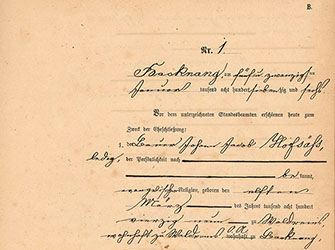 B.
Nr. 1
Backnang, am fünf u. zwanzigsten
Januar tausend acht hundert siebenzig und sechs
Vor dem unterzeichneten Standesbeamten erschienen heute zum
Zweck der Eheschließung:
1. der Bauer Johann Jacob Höfsäß,
ledig,
der Persönlichkeit nach
be kannt,
evangelischer Religion, geboren den achten
März des Jahres tausend acht hundert
vierzig neun zu Waldrems
O.A.
wohnhaft zu Waldrems Backnang,